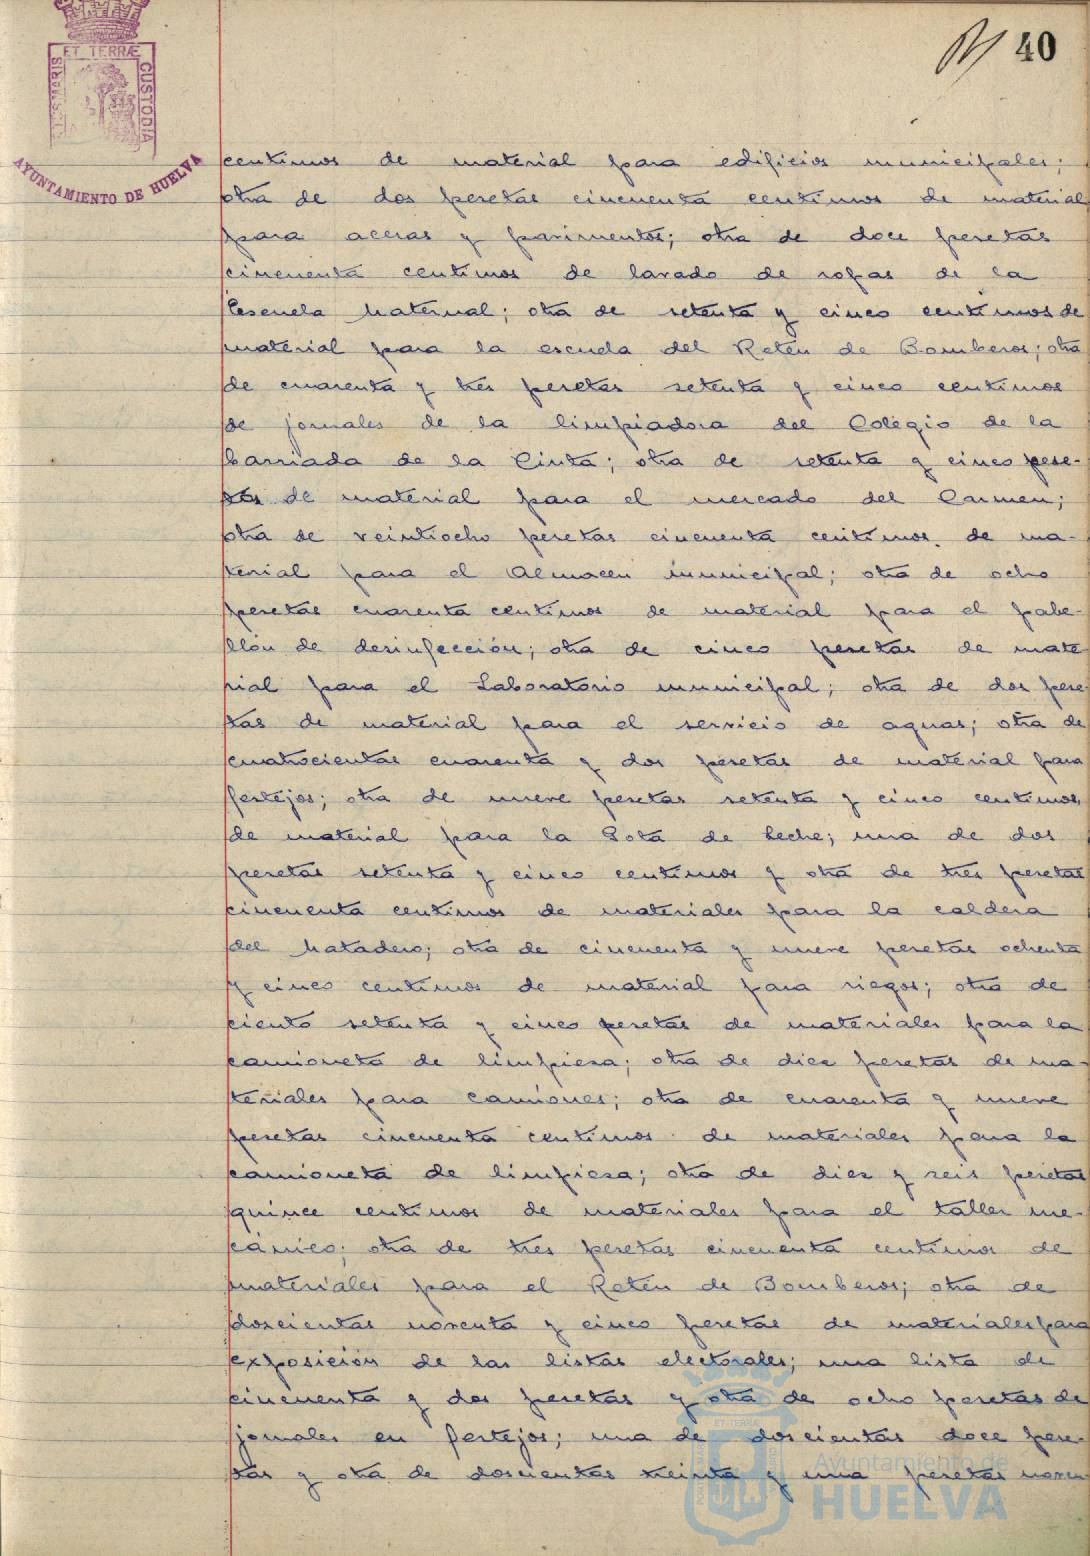 40
PORTUS MARIS ET TERRÆ CUSTODIA
AYUNTAMIENTO DE HUELVA
centimos de material para edificios municipales;
otra de dos pesetas cincuenta centimos de material
para aceras y pavimentos; otra de doce pesetas
cincuenta centimos de lavado de ropas de la
Escuela Maternal; otra de setenta y cinco centimos de
material para la escuela del Retén de Bomberos; otra
de cuarenta y tres pesetas setenta y cinco centimos
de jornales de la limpiadora del Colegio de la
barriada de la Cinta; otra de setenta y cinco pese-
tas de material para el mercado del Carmen;
otra de veintiocho pesetas cincuenta centimos de ma-
terial para el Almacen municipal; otra de ocho
pesetas cuarenta centimos de material para el pabe-
llón de desinfección; otra de cinco pesetas de mate
rial para el Laboratorio municipal; otra de dos pese
tas de material para el servicio de aguas; otra de
cuatrocientas cuarenta y dos pesetas de material para
festejos; otra de nueve pesetas setenta y cinco centimos
de material para la Gota de Leche; una de dos
pesetas setenta y cinco centimos y otra de tres pesetas
cincuenta centimos de materiales para la caldera
del Matadero; otra de cincuenta y nueve pesetas ochenta
y cinco centimos de material para riegos; otra de
ciento setenta y cinco pesetas de materiales para la
camioneta de limpieza; otra de diez pesetas de ma-
teriales para camiones; otra de cuarenta y nueve
pesetas cincuenta centimos de materiales para la
camioneta de limpieza; otra de diez y seis pesetas
quince centimos de materiales para el taller me-
cánico; otra de tres pesetas cincuenta centimos de
materiales para el Retén de Bomberos; otra de
doscientas noventa y cinco pesetas de materiales para
exposición de las listas electorales; una lista de
cincuenta y dos pesetas y otra de ocho pesetas de
jornales en festejos; una de doscientas doce pese-
tas y otra de doscientas treinta y una pesetas noven
Ayuntamiento de
HUELVA